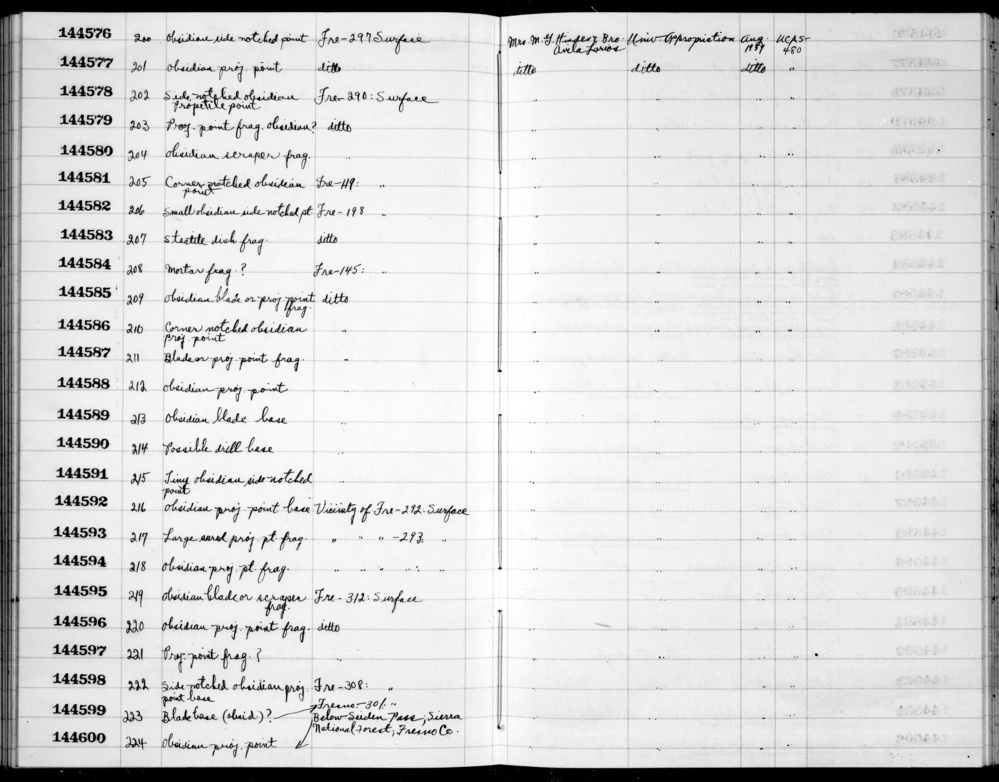 144576 200 Obsidian side notched point Fre-297 Surface Mrs. M. G. Hindes & Bro. Univ. Appropriation Aug. UCAS-
1959 480
144577 201 Obsidian proj. point ditto ditto ditto ditto "
144578 202 Side-notched obsidian Fre-290: Surface " " " "
projectile point
144579 203 Proj. point frag. obsidian? ditto " " " "
144580 204 obsidian scraper frag. " " " " "
144581 205 Corner notched obsidian Fre-119: " " " " "
point
144582 206 Small obsidian side notched pt. Fre-198 " " " " "
144583 207 Steatite dish frag. ditto " " " "
144584 208 Mortar frag.? Fre-145: " " " " "
144585 209 obsidian blade or proj. point ditto " " " "
frag.
144586 210 Corner notched obsidian " " " " "
proj. point
144587 211 Blade or proj. point frag. " " " " "
144588 212 obsidian proj. point " " " " "
144589 213 Obsidian blade base " " " " "
144590 214 Possible drill base " " " " "
144591 215 Tiny obsidian side-notched " " " " "
point
144592 216 obsidian proj. point base Vicinity of Fre-292: Surface " " " "
144593 217 Large proj. pt. frag. " " " -293: " " " " "
144594 218 obsidian proj. pt. frag. " " " ": " " " " "
144595 219 obsidian blade or scraper Fre-312: Surface " " " "
frag.
144596 220 obsidian proj. point frag. ditto " " " "
144597 221 Proj. point frag.? " " " " "
144598 222 Side-notched obsidian proj. Fre-308: " " " " "
point base
144599 223 Blade base (obsid.)? Fresno-301: " " " " "
Below Selden Pass, Sierra
National Forest, Fresno Co.
144600 224 Obsidian proj. point " " " "